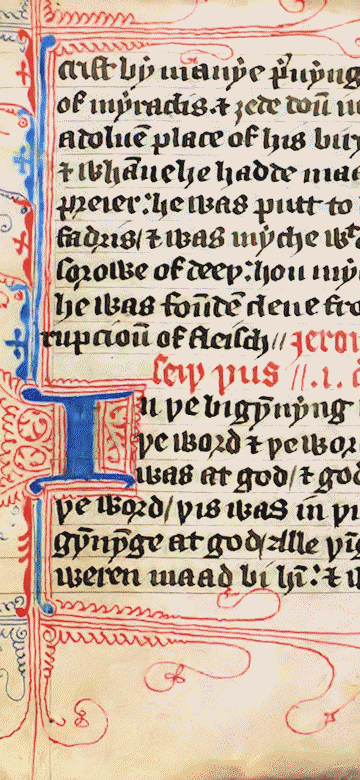 crist by manye p̄uyng
of myraclis. ⁊ ȝede doū
adoluē place of his biry
⁊ whāne he hadde maa
preier: he was putt to
fadris/ ⁊ was myche wᵗ
sorowe of deeþ: hou my
he was foūdē clene fro
rupcioū of fleisch// Jero
seiþ þus //.1.
In þe bigȳnyng
þe word ⁊ þe wor
was at god/ ⁊ god
þe word/ þis was in þi
gȳnynge at god/ Alle þī
weren maad bi hī: ⁊ w